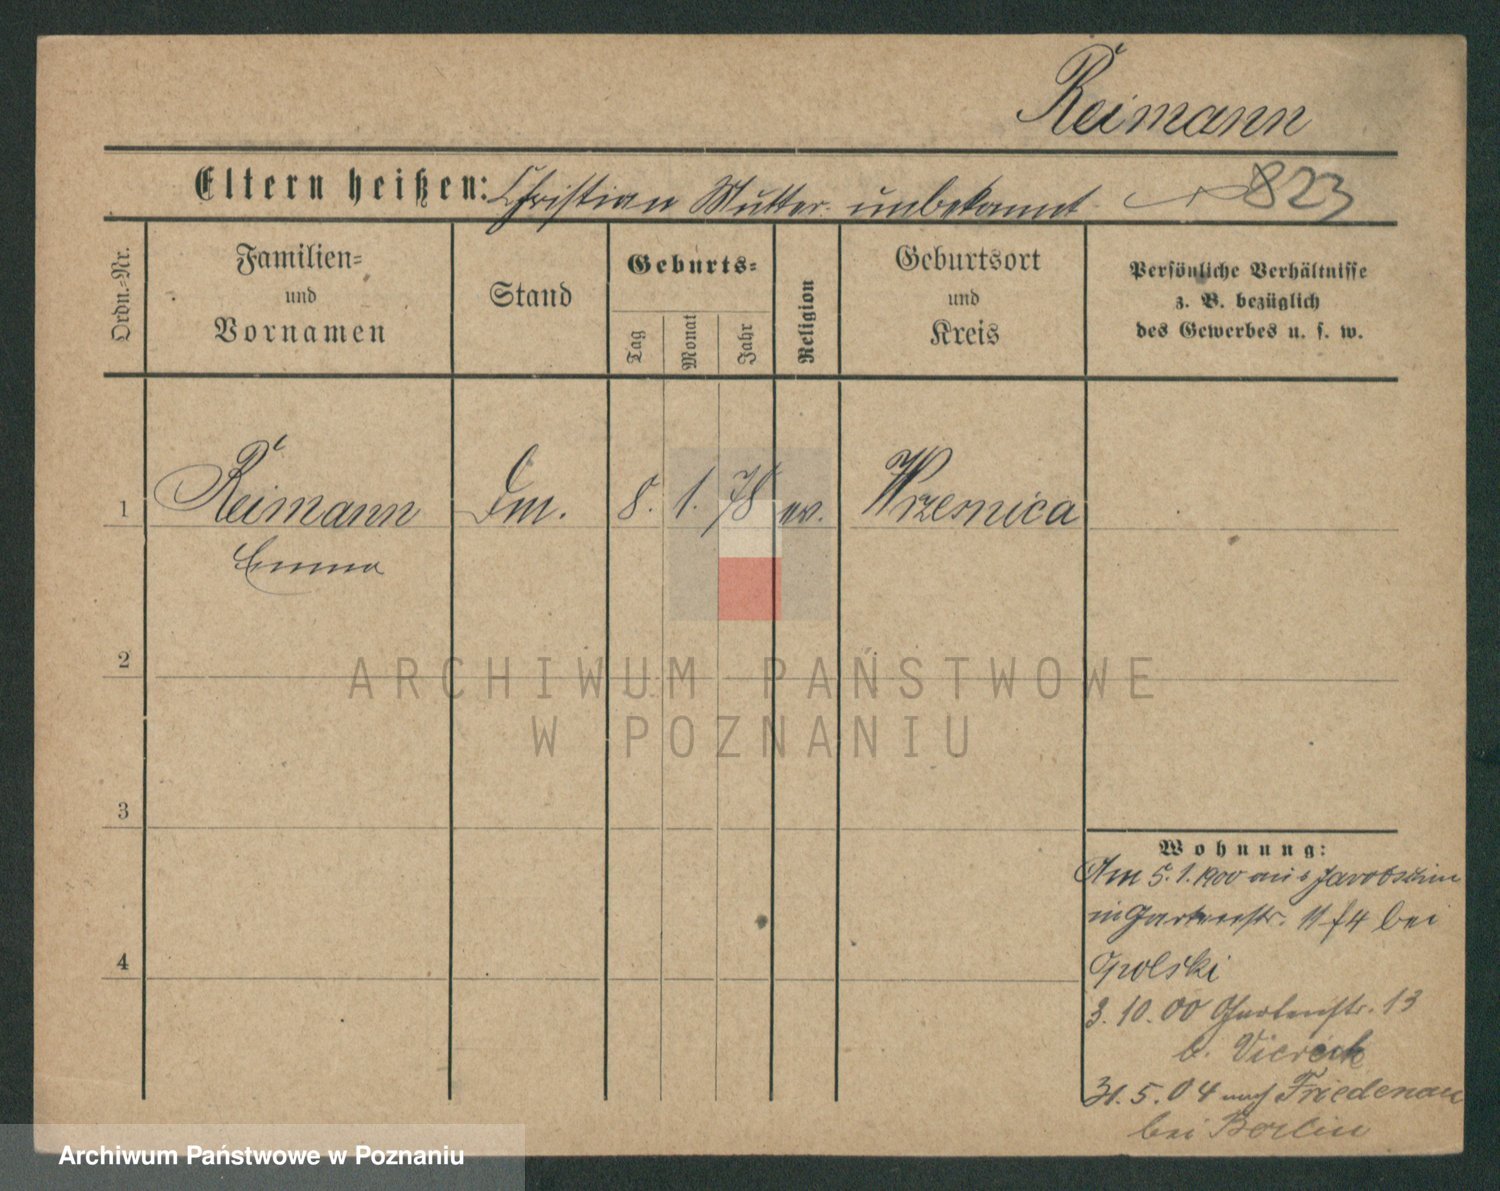 Reimann
Eltern heißen: Christian Mutter unbekannt 823
Ordn.-Nr.
Familien-
und
Vornamen
Stand
Geburts-
Tag
Monat
Jahr
Religion
Geburtsort
und
Kreis
Persönliche Verhältnisse
z. B. bezüglich
des Gewerbes u. s. w.
1 Reimann Dm. 8. 1. 78 ev. Wrzesnica
Emma
2
ARCHIWUM PAŃSTWOWE
W POZNANIU
3
4
Wohnung:
Am 5.1.1900 aus
in Gartenstr. 11 f4 bei
Opolski
3. 10. 00 Gartenstr. 13
b. Viereck
31. 5. 04 nach Friedenau
bei Berlin
Archiwum Państwowe w Poznaniu